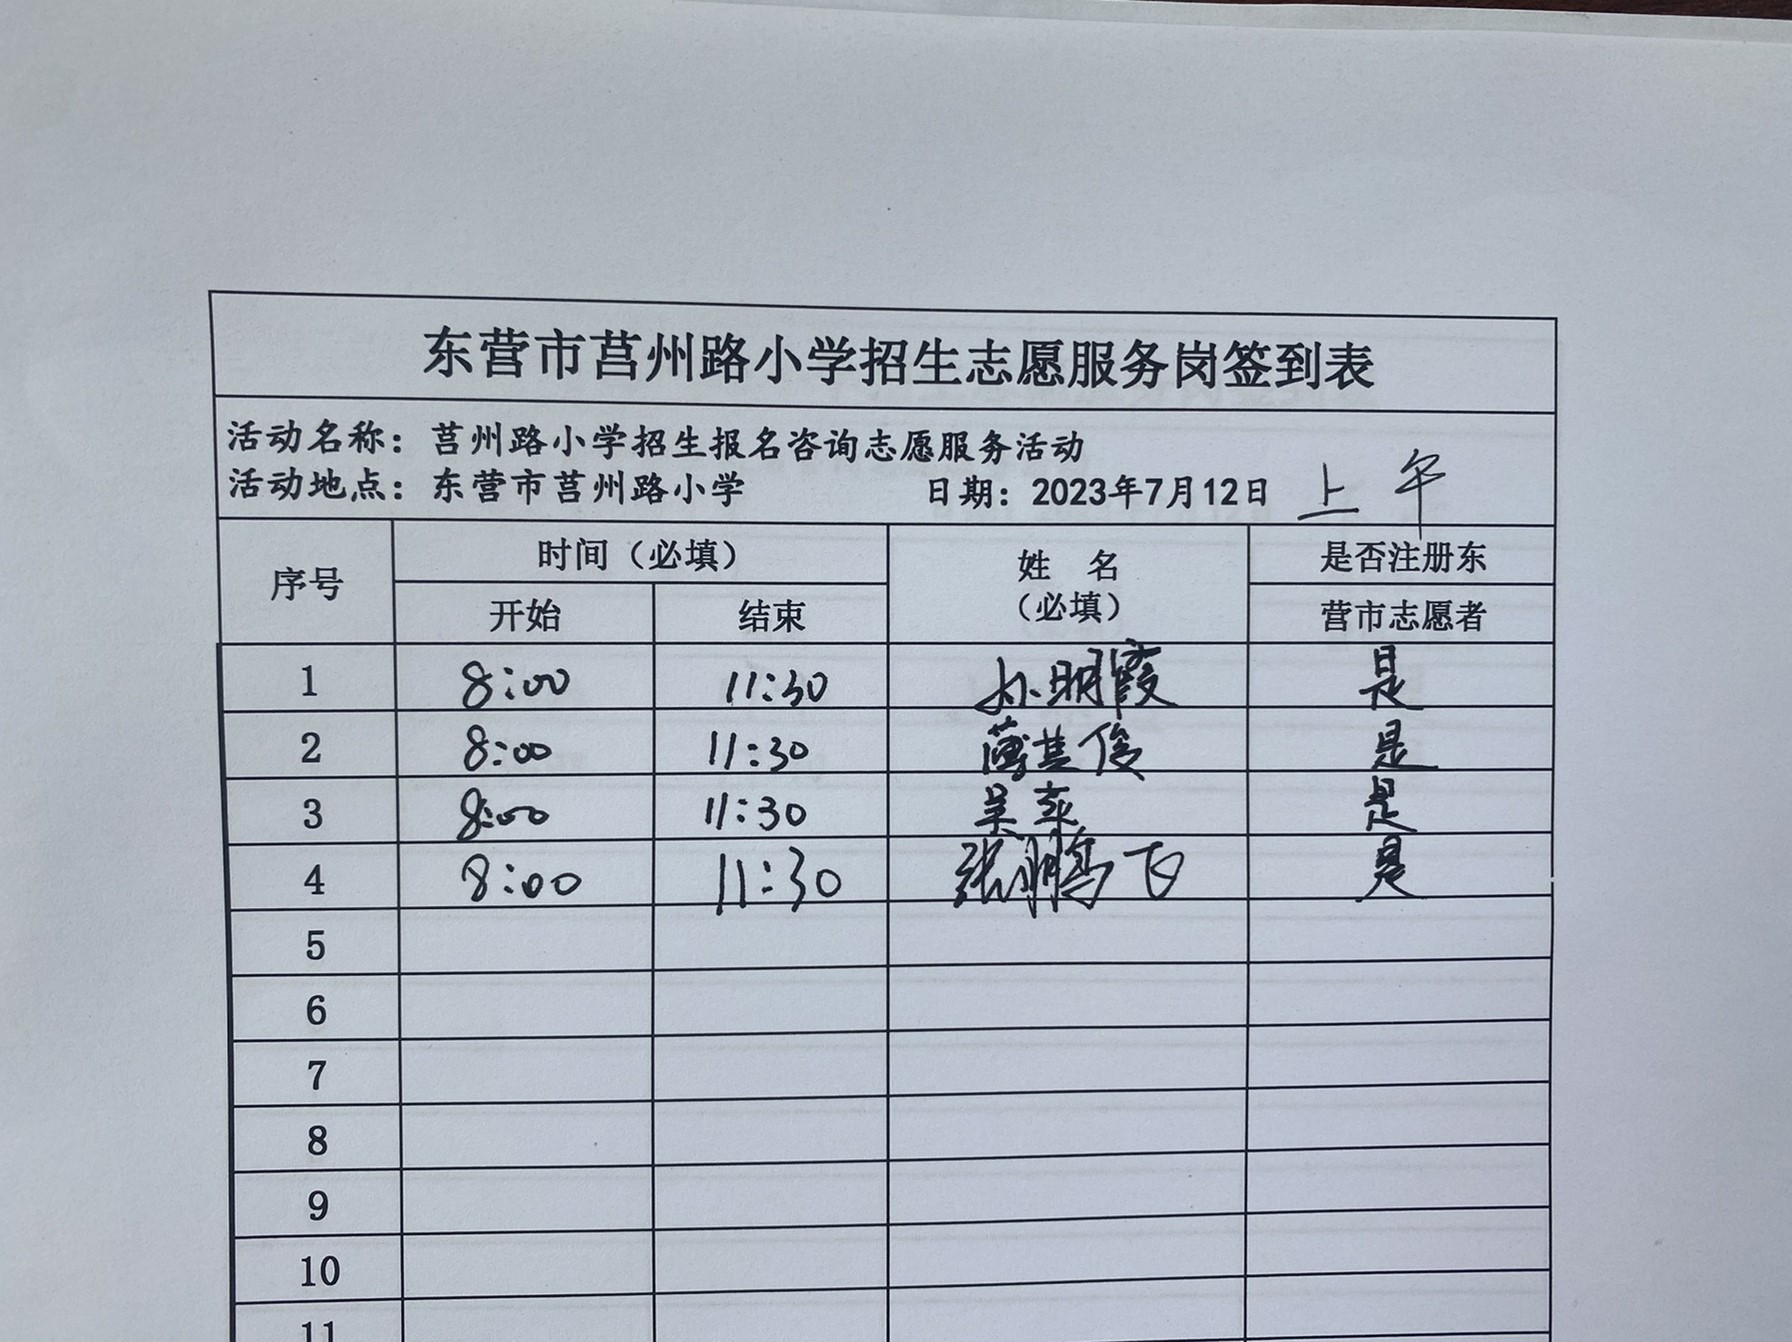 东营市莒州路小学招生志愿服务岗签到表
活动名称：莒州路小学招生报名咨询志愿服务活动
活动地点：东营市莒州路小学 日期：2023年7月12日 上午
序号 时间（必填） 姓 名（必填） 是否注册东营市志愿者
开始 结束
1 8:00 11:30 孙明霞 是
2 8:00 11:30 俊 是
3 8:00 11:30 吴 是
4 8:00 11:30 张鹏飞 是
5
6
7
8
9
10
11